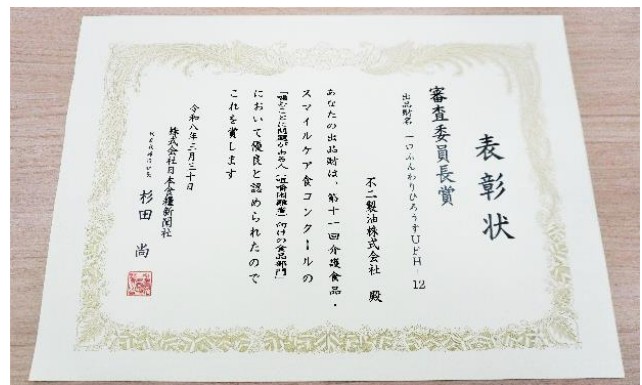 表彰状
審査委員長賞
出品財名 一口ふんわりひろうすUFH 12
不二製油株式会社 殿
あなたの出品財は、第十一回介護食品・
スマイルケア食コンクールの
「噛むことに問題がある人(咀嚼困難者)向けの食品部門」
において優良と認められたので
これを賞します
令和八年三月三十日
株式会社日本食糧新聞社
杉田 尚